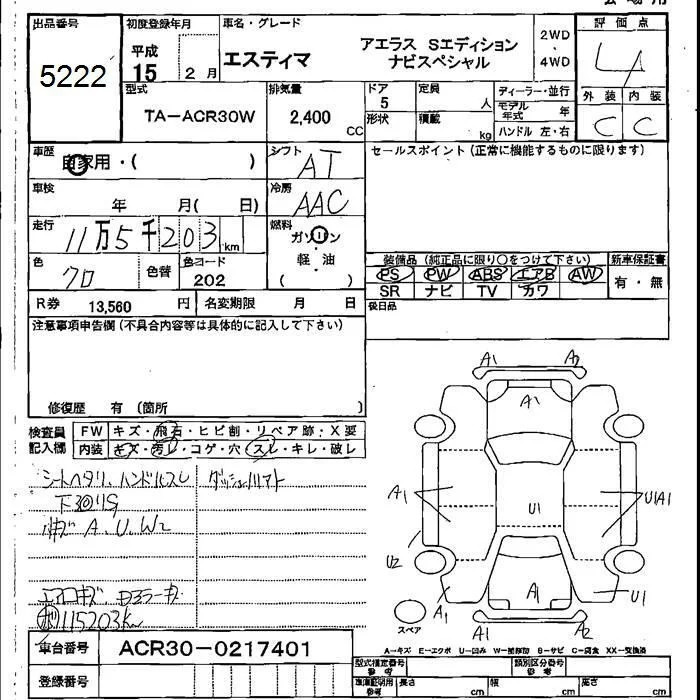 出品番号
5222
初度登録年月
平成
15 2 月
車名・グレード
エスティマ
アエラス Sエディション
ナビスペシャル
2WD
・
4WD
評価点
外装 内装
C C
型式
TA-ACR30W
排気量
2,400
CC
ドア
5
形状
定員
人
積載
kg
ディーラー・並行
モデル
年式 年
ハンドル 左・右
車歴
自家用・( )
シフト
AT
セールスポイント(正常に機能するものに限ります)
車検
年 月( 日)
冷房
AAC
走行
11万5千203km
燃料
ガソリン
軽油
( )
色
クロ
色替
色コード
202
装備品(純正品に限り○をつけて下さい) 新車保証書
PS PW ABS エアB AW
SR ナビ TV カワ
有・無
R券 13,560 円 名変期限 月 日
後日品
注意事項申告欄(不具合内容等は具体的に記入して下さい)
修復歴 有 (箇所 )
検査員
記入欄
FW キズ・飛石・ヒビ割・リペア跡・X要
内装 キズ・汚レ・コゲ・穴・スレ・キレ・破レ
シートヘタリ、ハンドルスレ
キズ A、U、W2
エアロキズ
115203km
A1 A2
A1
A1
U1
U1A1
U2
A1
A1
U1
A1 A2
スペア
A-キズ E-エクボ U-凹み W-補修跡 S-サビ C-腐食 XX-交換済
車台番号
ACR30-0217401
登録番号
型式指定番号
参考
類別区分番号
参考
車庫証明用
参考
長さ cm 幅 cm 高さ cm